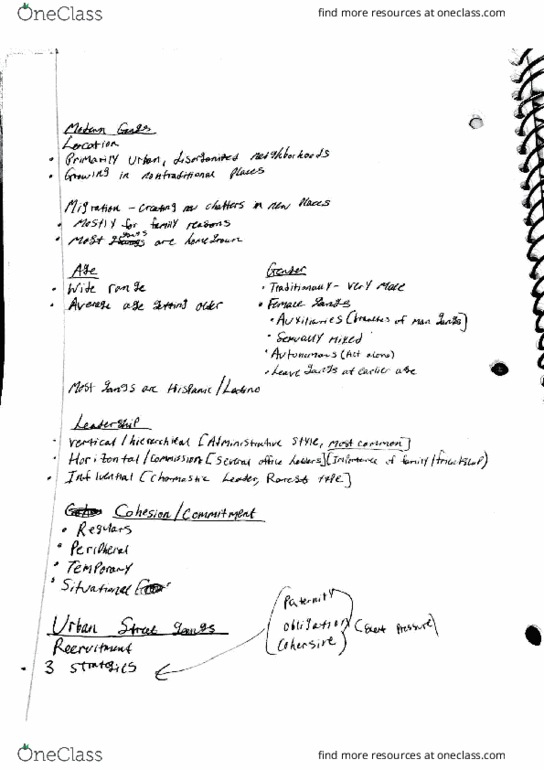 OneClass
find more resources at oneclass.com
Modern Gangs
Location
• Primarily Urban, disorganized neighborhoods
• Growing in nontraditional places
Migration - creating new in new places
• Mostly for family reasons
• Most gangs are homegrown
Age
• Wide range
• Average age getting older
Gender
• Traditionally - very male
• Female gangs
• Auxiliaries [branches of man gangs]
• Sexually mixed
• Autonomous (Act alone)
• Leave gangs at earlier age
Most gangs are Hispanic/Latino
Leadership
• Vertical/hierarchical [Administrative style, most common]
• Horizontal/Commission [several office holders] (Importance of family/friendship)
• Influential [Leader, Rarest type]
Cohesion/Commitment
• Regulars
• Peripheral
• Temporary
• Situational
Urban Street gangs
Recruitment
• 3 strategies
Paternity
obligation
Cohersive
Pressure
OneClass
find more resources at oneclass.com